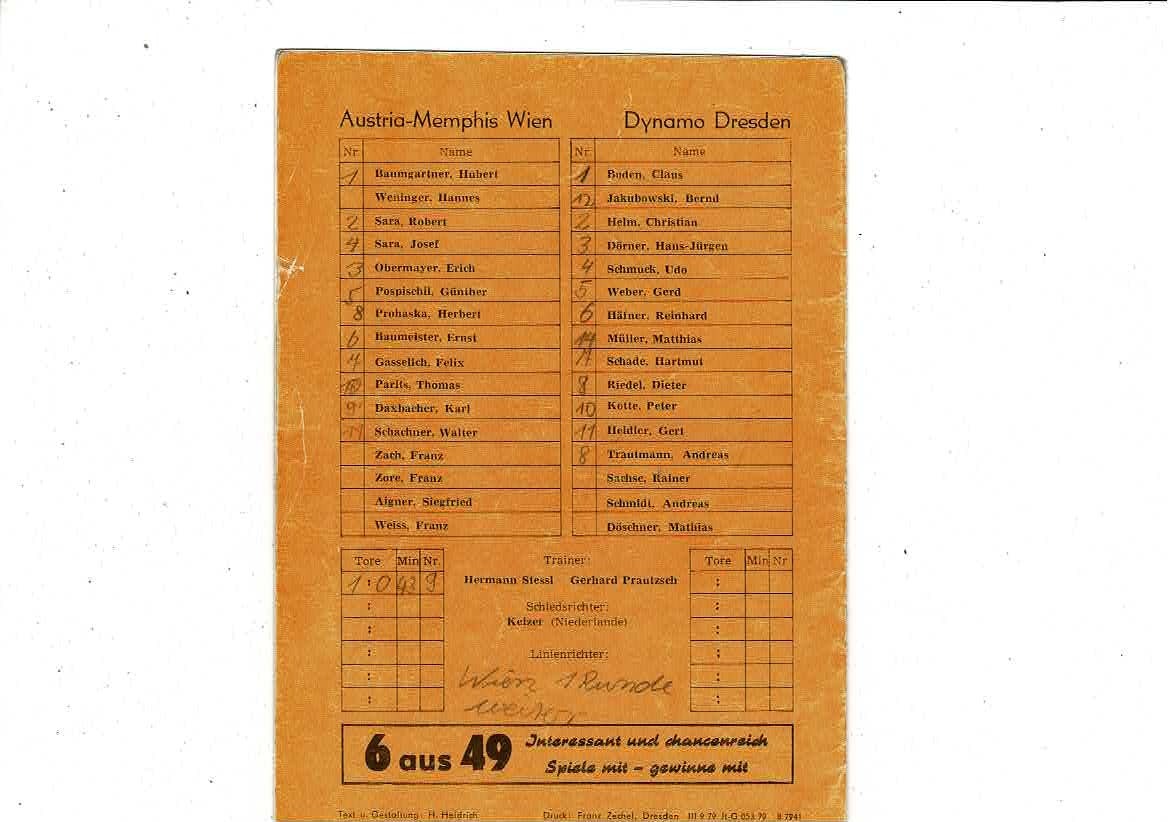 Austria-Memphis Wien
Nr. Name
1 Baumgartner, Hubert
Weninger, Hannes
2 Sara, Robert
4 Sara, Josef
3 Obermayer, Erich
5 Pospischil, Günther
8 Prohaska, Herbert
6 Baumeister, Ernst
Gasselich, Felix
10 Parits, Thomas
9 Daxbacher, Karl
11 Schachner, Walter
Zach, Franz
Zore, Franz
Aigner, Siegfried
Weiss, Franz
Dynamo Dresden
Nr. Name
1 Boden, Claus
12 Jakubowski, Bernd
2 Helm, Christian
3 Dörner, Hans-Jürgen
4 Schmuck, Udo
5 Weber, Gerd
6 Häfner, Reinhard
14 Müller, Matthias
Schade, Hartmut
8 Riedel, Dieter
10 Kotte, Peter
11 Heidler, Gert
8 Trautmann, Andreas
Sachse, Rainer
Schmidt, Andreas
Döschner, Mathias
Tore Min Nr.
1 : 0 43 9
:
:
:
:
:
Trainer:
Hermann Stessl Gerhard Prautzsch
Schiedsrichter:
Keizer (Niederlande)
Linienrichter:
Wien 1 Runde
weiter
Tore Min Nr
:
:
:
:
:
:
6 aus 49 Interessant und chancenreich
Spiele mit – gewinne mit
Text u. Gestaltung: H. Heidrich Druck: Franz Zechel, Dresden III 9 79 Jt-G 053 79 8 7941